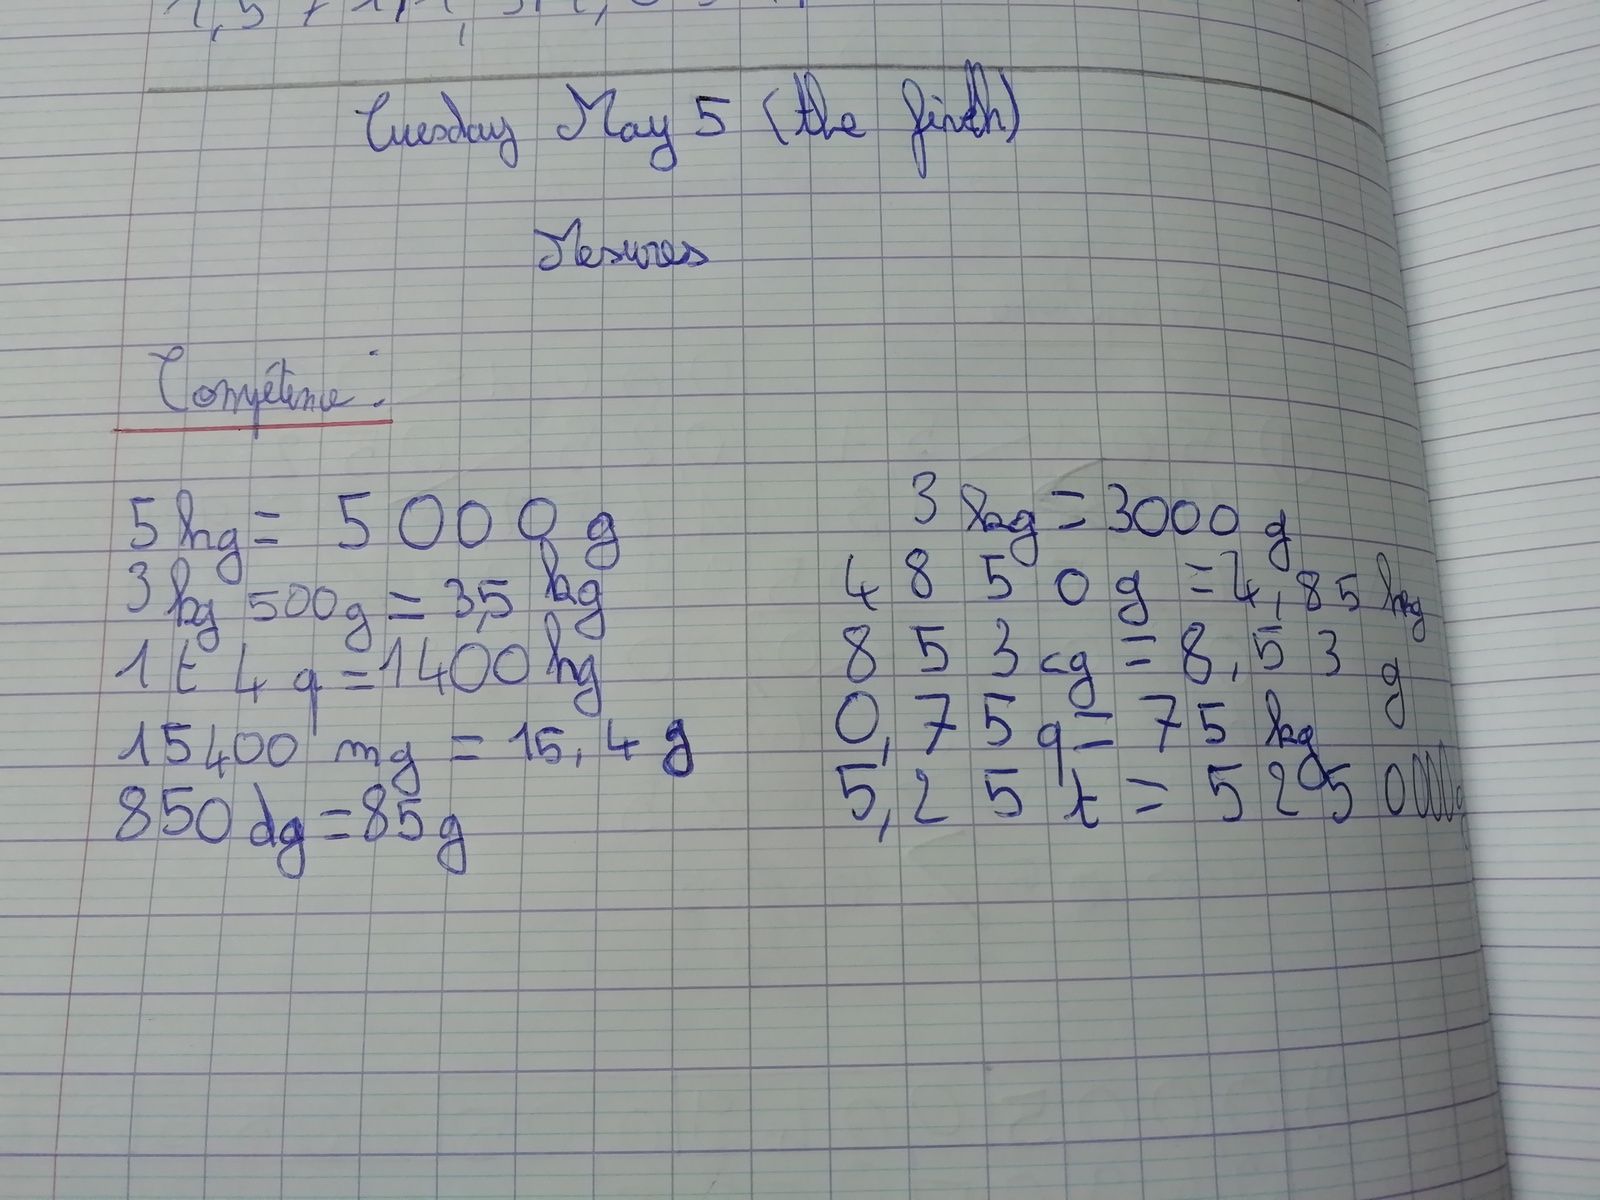 Tuesday May 5 (the finth)
Mesures
Compétence :
5 kg = 5000 g
3 kg 500g = 3,5 kg
1 t 4 q = 1400 kg
15400 mg = 15,4 g
850 dg = 85g
3 kg = 3000 g
4850g = 4,85 kg
853 cg = 8,53 g
0,75 q = 75 kg
5,25 t = 5250000g